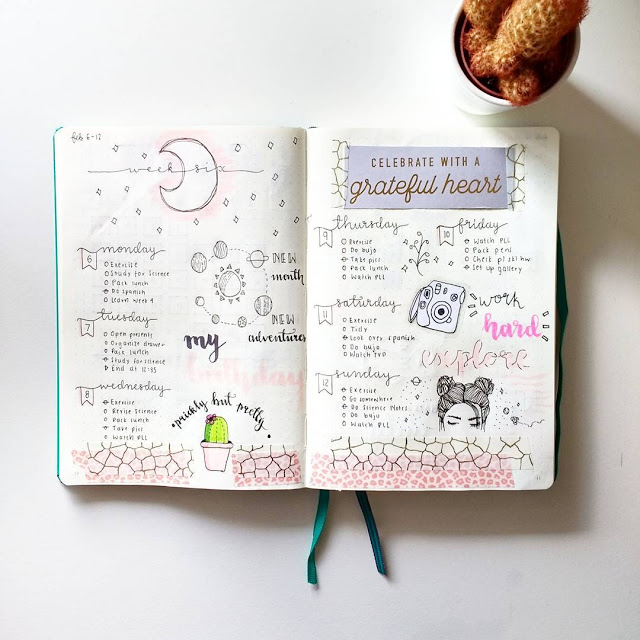 feb 6-12
week six
6 monday
Exercise
Study for science
Pack lunch
Do spanish
Learn week 4
NEW
month
NEW
adventures
7 tuesday
Open presents
Organise drawer
Pack lunch
Study for science
End at 12:35
my
birthday
8 wednesday
Exercise
Revise science
Pack lunch
Take pics
Watch PLL
prickly but pretty.
CELEBRATE WITH A
grateful heart
9 thursday
Exercise
Do bujo
Take pics
Pack lunch
Watch PLL
10 friday
Watch PLL
Pack pens
Check
Set up gallery
11 saturday
Exercise
Tidy
Look over spanish
Do bujo
Watch TVD
work
hard
explore
12 sunday
Exercise
Go somewhere
Do Science Notes
Do bujo
Watch PLL